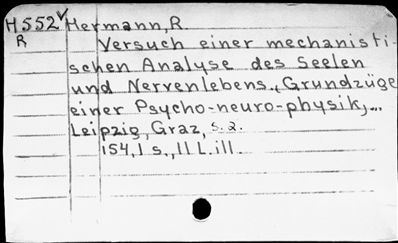 H552 Hermann, R.
R
Versuch einer mechanisti-
schen Analyse des Seelen
und Nervenlebens., Grundzüge
einer Psycho-neuro-physik,...
Leipzig, Graz, s.a.
154,1 s., 11 L. ill.